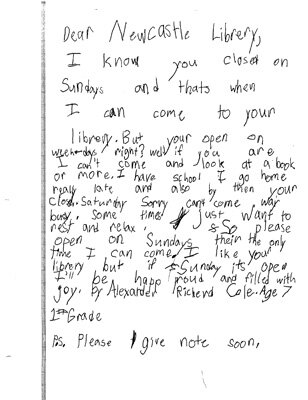 Dear Newcastle Library,
I know you closed on
Sundays and thats when
I can come to your
library. But your open on
weekdays right? well if you are
I can't come and look at a book
or more. I have school I go home
really late and also by then your
Close. Saturday Sorry can't come, way
busy. Some times I just want to
rest and relax. So please
open on Sundays their the only
time I can come. I like your
library but if Sunday its open
I'll be happy proud and filled with
joy. by Alexander Richerd Cole. Age 7
1st Grade
P.s. Please give note soon.